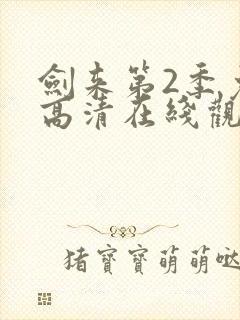 劍来第2季
高清在綫觀
猪寶寶萌萌噠